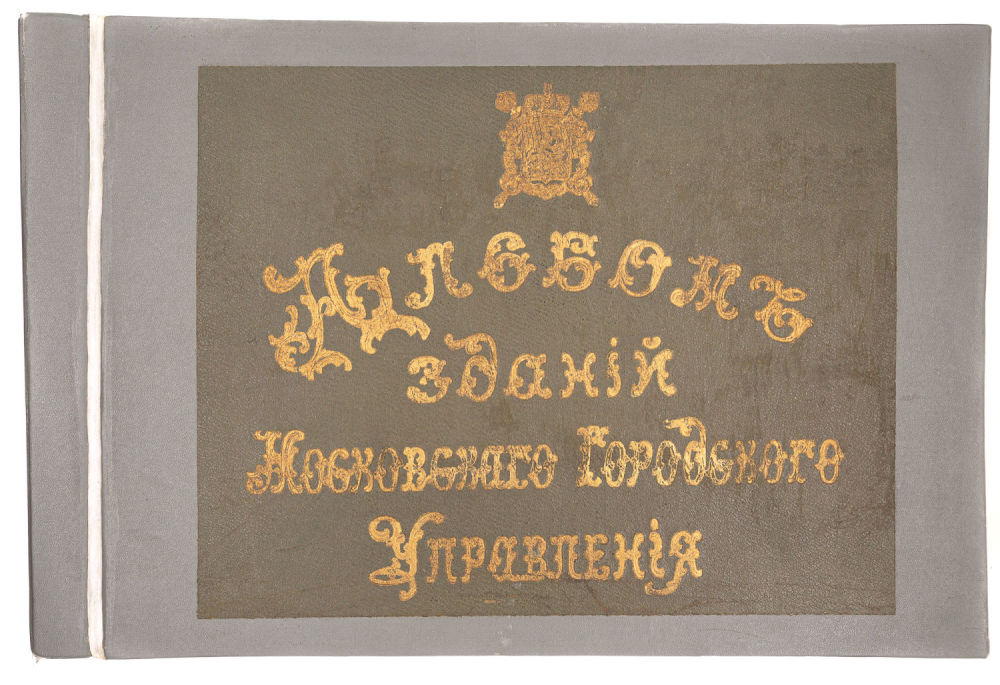 Альбомъ
зданій
Московскаго Городского
Управленія